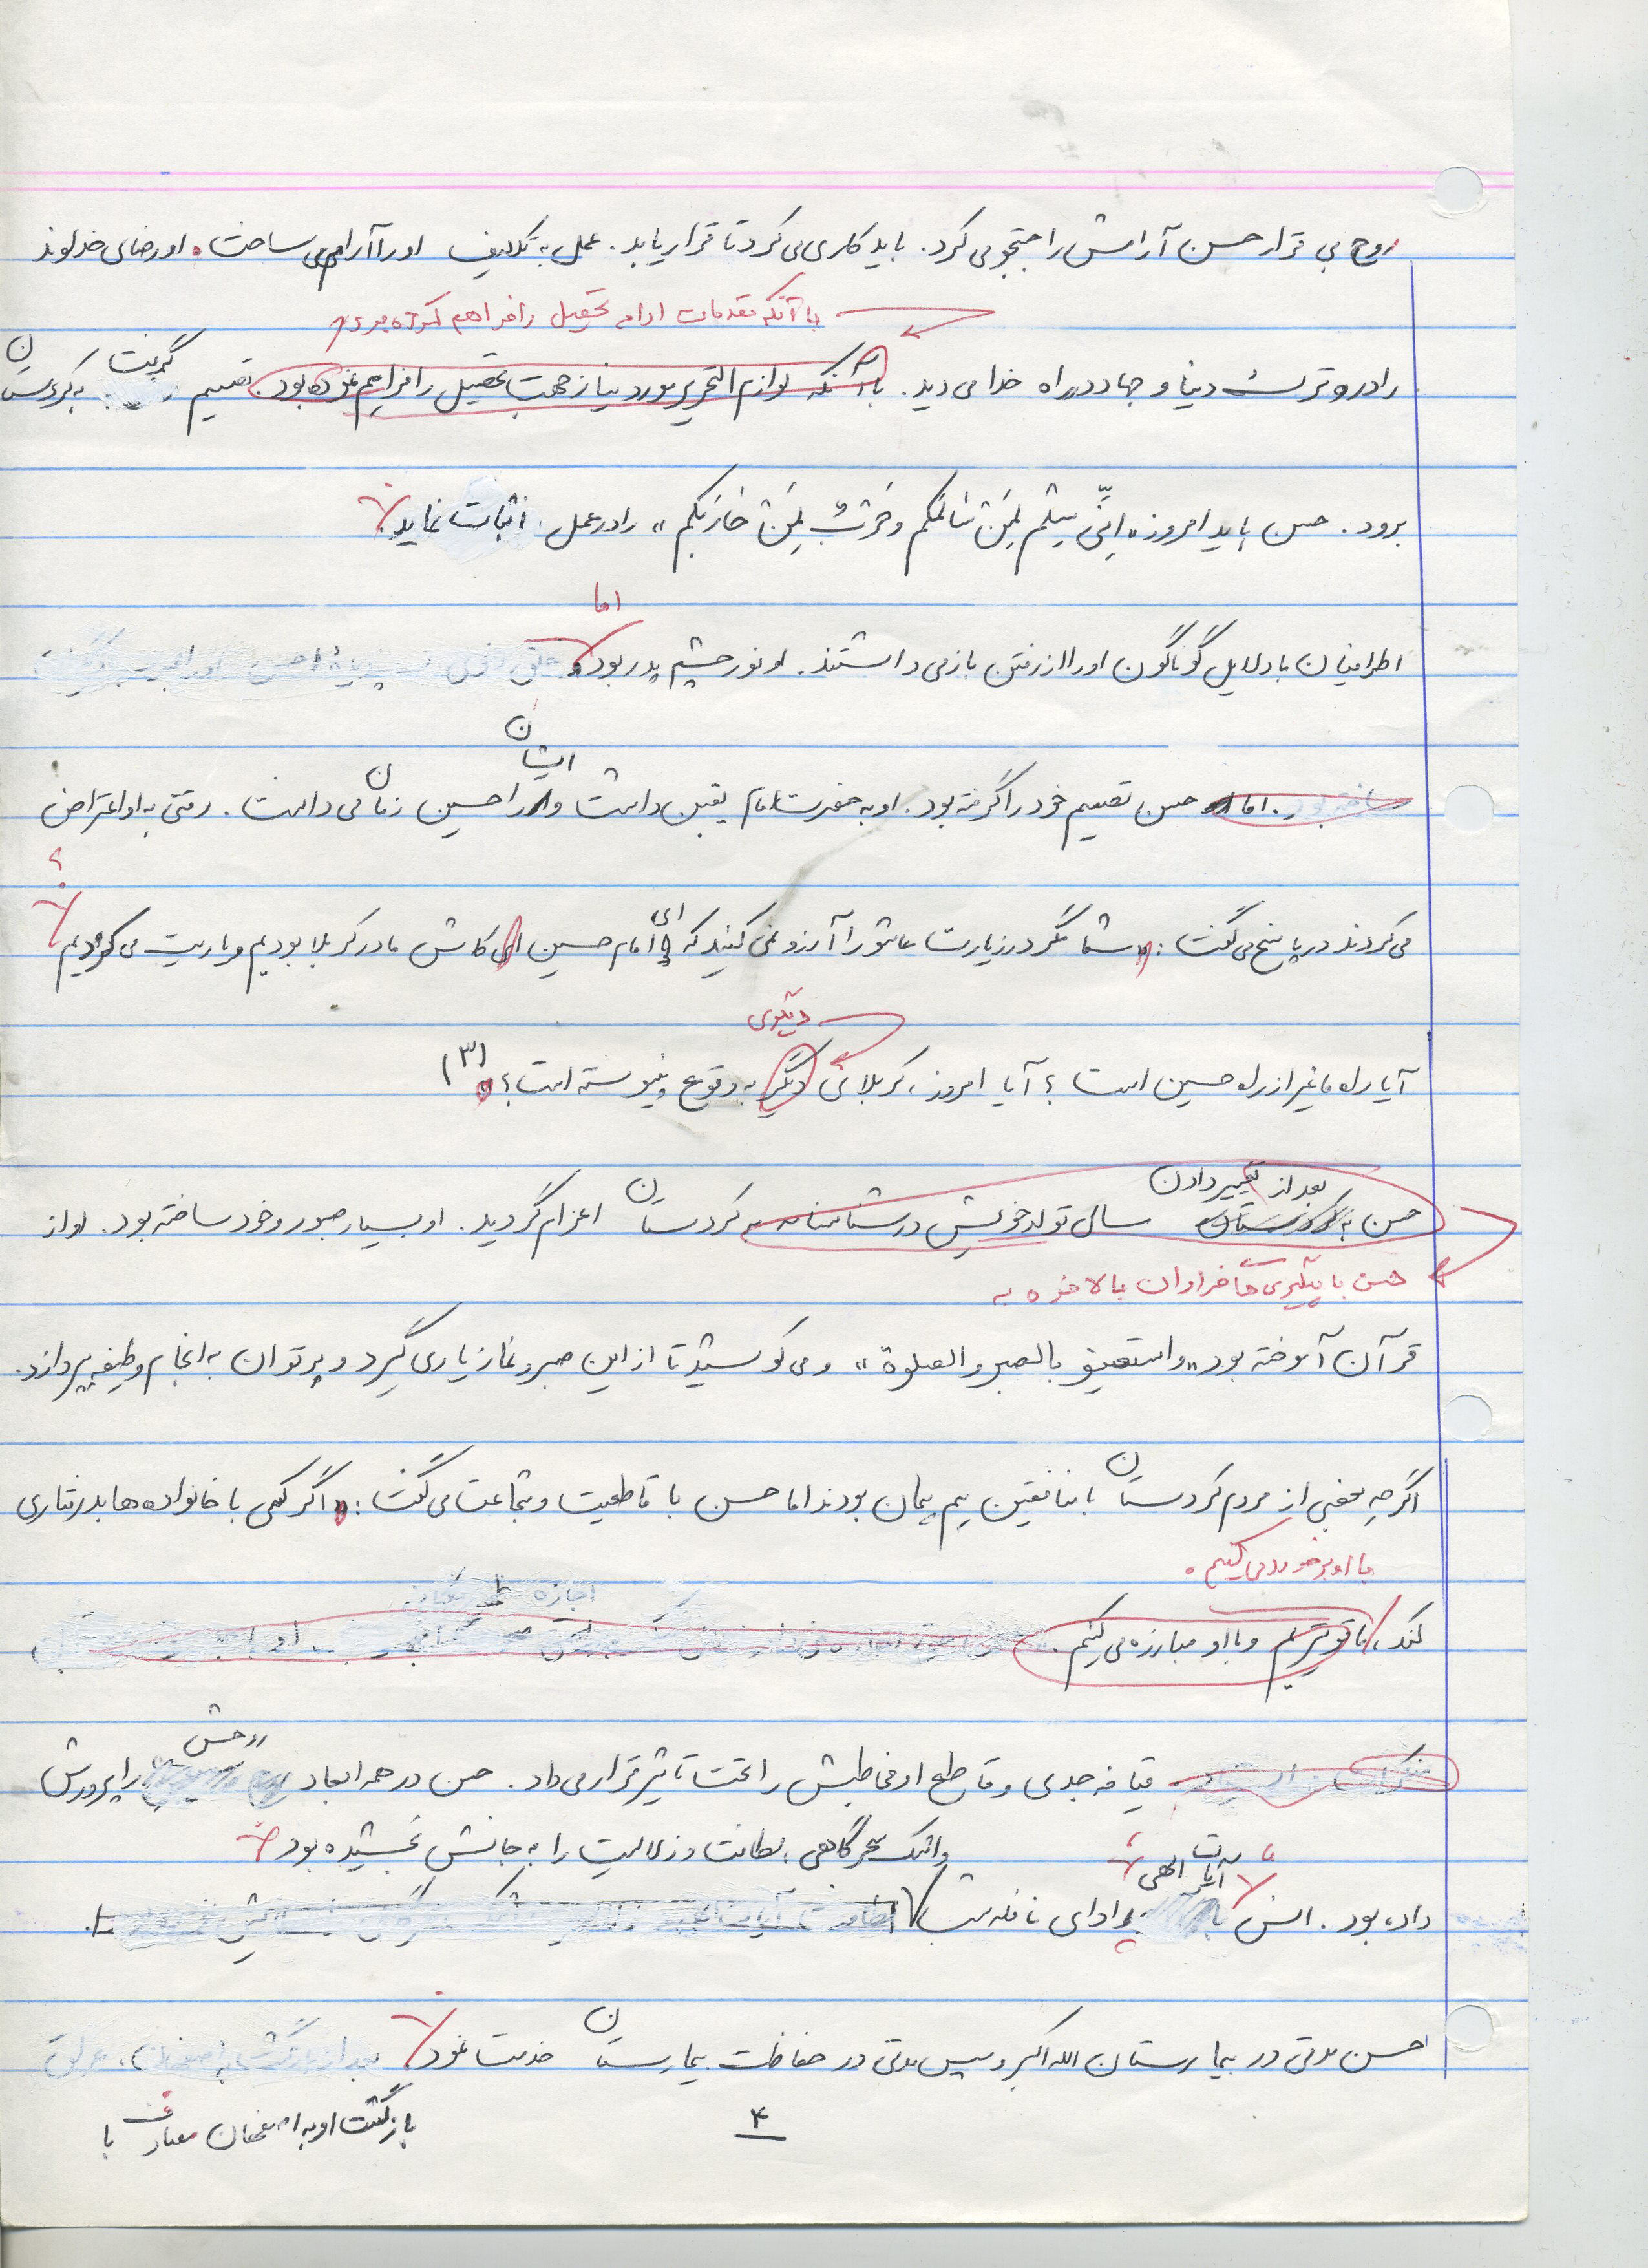 روح بی قرار حسن آرامش را جستجو می کرد. باید کاری می کرد تا قرار یابد. عمل به تکلیف او را آرام می ساخت. او رضای خداوند
با آنکه مقدمات ادامه تحصیل را فراهم کرده بود
را در ترک دنیا و جهاد در راه خدا می دید. با آنکه لوازم التحریر مورد نیاز جهت تحصیل را فراهم نموده بود. تصمیم گرفت به کردستان
برود. حسن باید امروز «اِنّی سِلْم لِمَنْ سٰالَمَکُم وَ حَرْبٌ لِمَنْ حٰارَبَکُم» را در عمل اثبات نماید.
اما
اطرافیان با دلایل گوناگون او را از رفتن باز می داشتند. او نور چشم پدر بود
ایشان
اما حسن تصمیم خود را گرفته بود. او به حضرت امام یقین داشت و را حسین زمان می دانست. وقتی به او اعتراض
؟
می کردند در پاسخ می گفت: «شما مگر در زیارت عاشورا آرزو نمی کنید که ای امام حسین کاش ما در کربلا بودیم و یاریت می کردیم
دیگری
آیا راه ما غیر از راه حسین است؟ آیا امروز، کربلائی دیگر به وقوع نپیوسته است؟» (۳)
بعد از تغییر دادن
حسن به کردستان سال تولد خویش در شناسنامه به کردستان اعزام گردید. او بسیار صبور و خودساخته بود. او از
حسن با پیگیری های فراوان بالاخره به
قرآن آموخته بود «واستعینو بالصبر و الصلوة» و می کوشید تا از این صبر و نماز یاری گیرد و پرتوان به انجام وظیفه بپردازد.
اگر چه بعضی از مردم کردستان با منافقین هم پیمان بودند اما حسن با قاطعیت و شجاعت می گفت: «اگر کسی با خانواده ها بدرفتاری
با او برخورد می کنیم.
اجازه
کند، ما قویتریم و با او مبارزه می کنیم.
روحش
قیافه جدی و قاطع او مخاطبش را تحت تاثیر قرار می داد. حسن در همه ابعاد را پرورش
واشک سحرگاهی، لطافت و زلالیت را به جانش بخشیده بود.
آیات الهی،
داده بود. انس با ادای نافله شب
حسن مدتی در بیمارستان الله اکبر و سپس مدتی در حفاظت بیمارستان خدمت نمود. بعد از بازگشت به اصفهان
بازگشت او به اصفهان مصادف با
۴